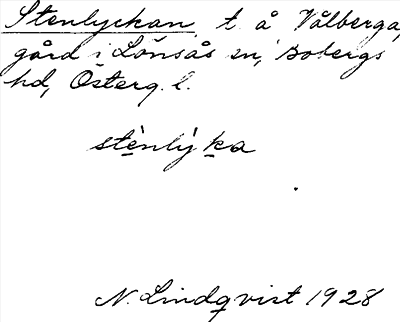 Stenlyckan, t. å Vålberga,
gård i Lönsås sn, Bobergs
hd, Österg. l.
stènlý ka
N. Lindqvist 1928